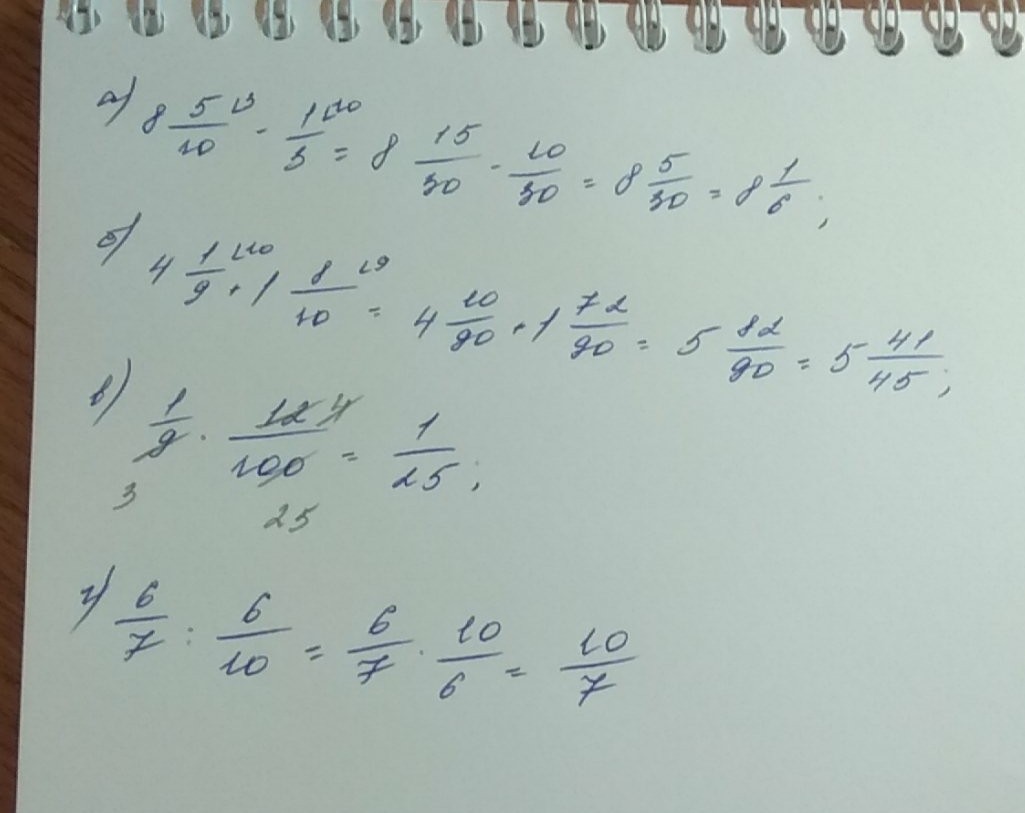 а) 8 5/10 ⌊3 - 1/3 ⌊10 = 8 15/30 - 10/30 = 8 5/30 = 8 1/6;
б) 4 1/9 ⌊10 + 1 8/10 ⌊9 = 4 10/90 + 1 72/90 = 5 82/90 = 5 41/45;
в) 1/9 · 12 4/100 = 1/25;
3 25
г) 6/7 : 6/10 = 6/7 · 10/6 = 10/7